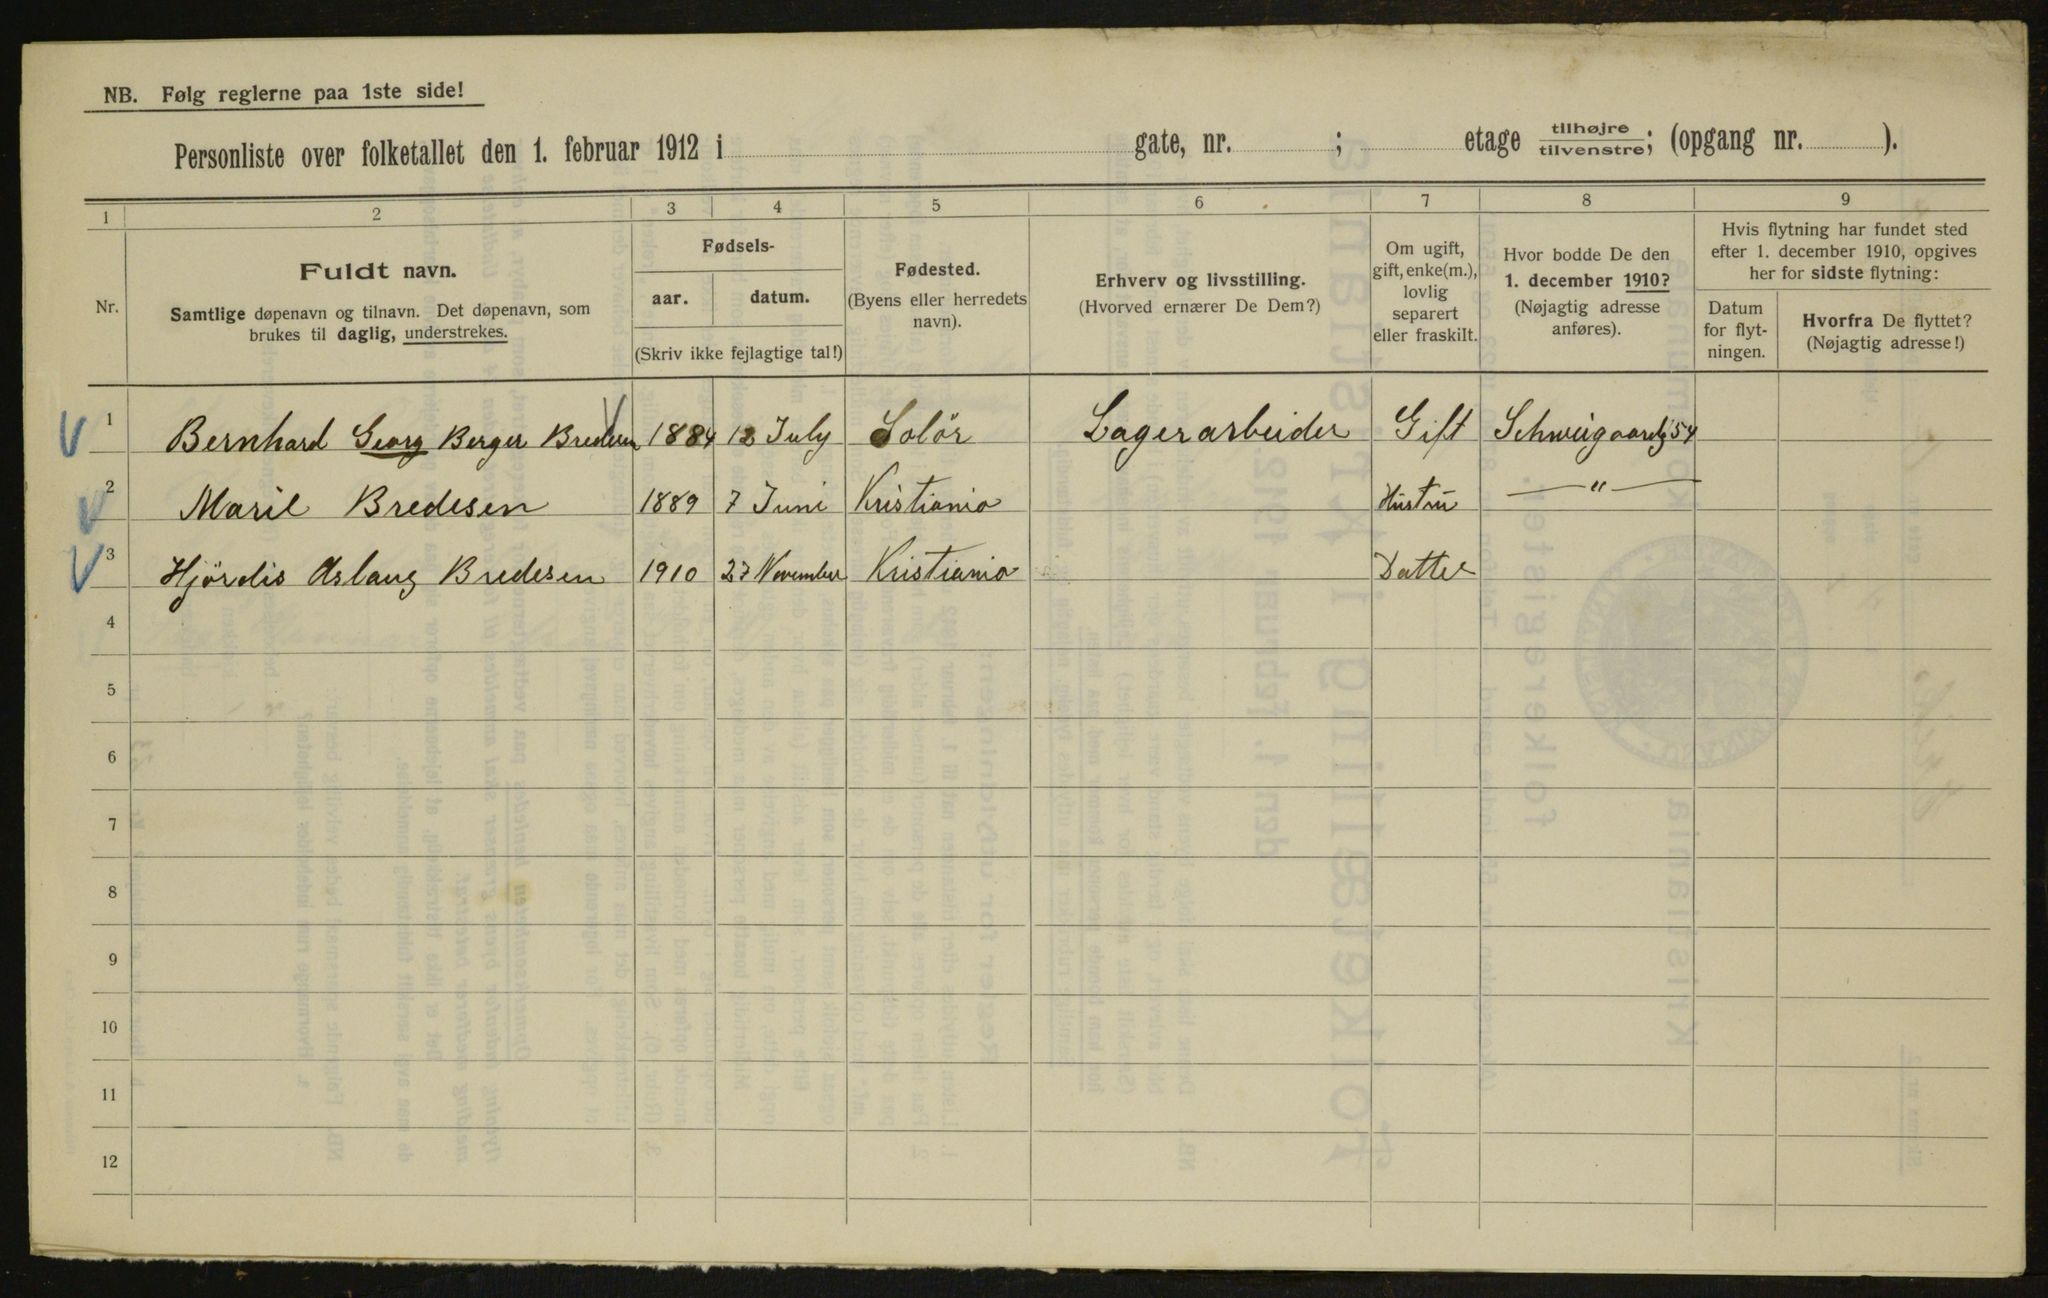 NB. Følg reglerne paa 1ste side!
Personliste over folketallet den 1. februar 1912 i gate, nr. ; etage tilhøjre tilvenstre; (opgang nr. ).
1 2 3 4 5 6 7 8 9
Nr.
Fuldt navn.
Samtlige døpenavn og tilnavn. Det døpenavn, som
brukes til daglig, understrekes.
Fødsels-
aar. datum.
(Skriv ikke fejlagtige tal!)
Fødested.
(Byens eller herredets
navn).
Erhverv og livsstilling.
(Hvorved ernærer De Dem?)
Om ugift,
gift, enke(m.),
lovlig
separert
eller fraskilt.
Hvor bodde De den
1. december 1910?
(Nøjagtig adresse
anføres).
Hvis flytning har fundet sted
efter 1. december 1910, opgives
her for sidste flytning:
Datum
for flyt-
ningen.
Hvorfra De flyttet?
(Nøjagtig adresse!)
1 Bernhard Georg Berger Bredesen 1884 12 July Solör Lagerarbeider Gift Schweigaardg 54
2 Marie Bredesen 1889 7 Juni Kristiania Hustru — " —
3 Hjördis Aslaug Bredesen 1910 27 November Kristiania Datter
4
5
6
7
8
9
10
11
12